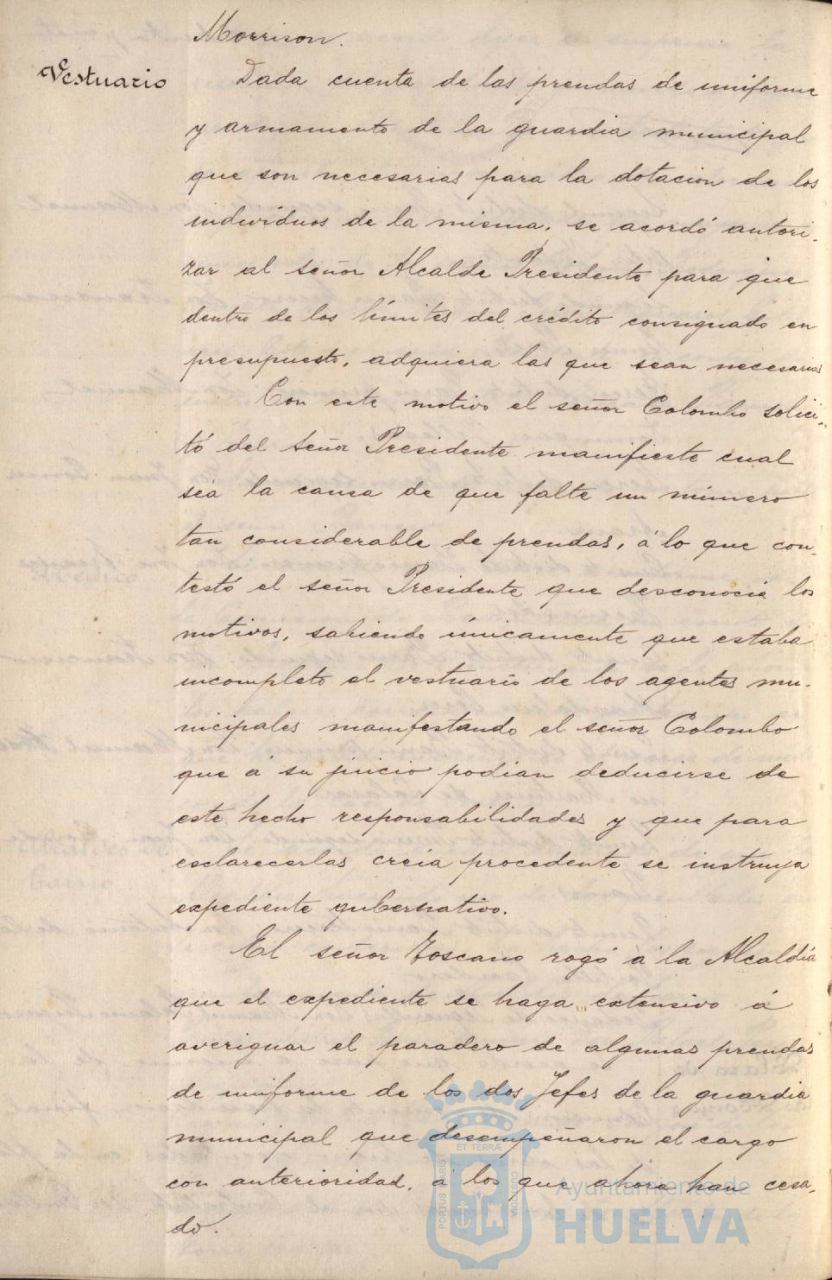 Morrison.
Vestuario
Dada cuenta de las prendas de uniforme
y armamento de la guardia municipal
que son necesarias para la dotacion de los
indivíduos de la misma, se acordó autori-
zar al señor Alcalde Presidente para que
dentro de los límites del crédito consignado en
presupuesto, adquiera las que sean necesarias
Con este motivo el señor Colombo solici-
tó del señor Presidente manifieste cual
sea la causa de que falte un número
tan considerable de prendas, á lo que con-
testó el señor Presidente que desconocia los
motivos, sabiendo únicamente que estaba
incompleto el vestuario de los agentes mu-
nicipales manifestando el señor Colombo
que á su juicio podian deducirse de
este hecho responsabilidades y que para
esclarecerlas creia procedente se instruya
expediente gubernativo.
El señor Toscano rogó á la Alcaldía
que el expediente se haga extensivo á
averiguar el paradero de algunas prendas
de uniforme de los dos Jefes de la guardia
municipal que desempeñaron el cargo
con anterioridad, á los que ahora han cesa-
do.
ET TERRÆ
PORTUS MARIS
CUSTODIA
Ayuntamiento de
HUELVA